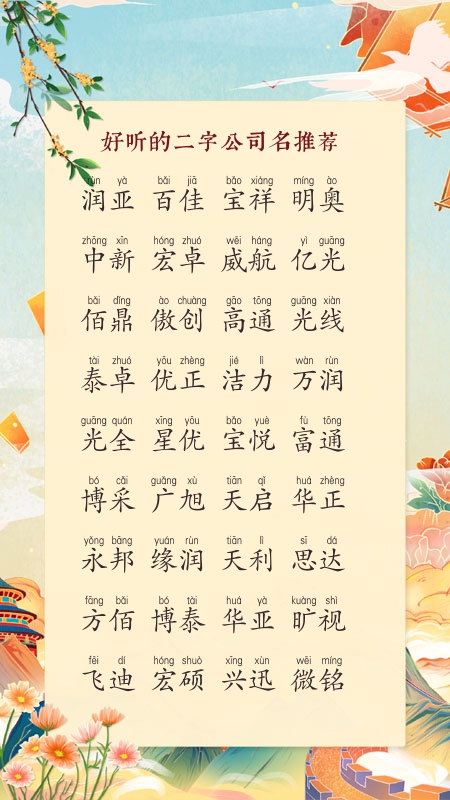 好听的二字公司名推荐
rùn yà bǎi jiā bǎo xiáng míng ào
润亚 百佳 宝祥 明奥
zhōng xīn hóng zhuó wēi háng yì guāng
中新 宏卓 威航 亿光
bǎi dǐng ào chuàng gāo tōng guāng xiàn
佰鼎 傲创 高通 光线
tài zhuó yōu zhèng jié lì wàn rùn
泰卓 优正 洁力 万润
guāng quán xīng yōu bǎo yuè fù tōng
光全 星优 宝悦 富通
bó cǎi guǎng xù tiān qǐ huá zhèng
博采 广旭 天启 华正
yǒng bāng yuán rùn tiān lì sī dá
永邦 缘润 天利 思达
fāng bǎi bó tài huá yà kuàng shì
方佰 博泰 华亚 旷视
fēi dí hóng shuò xīng xùn wēi míng
飞迪 宏硕 兴迅 微铭